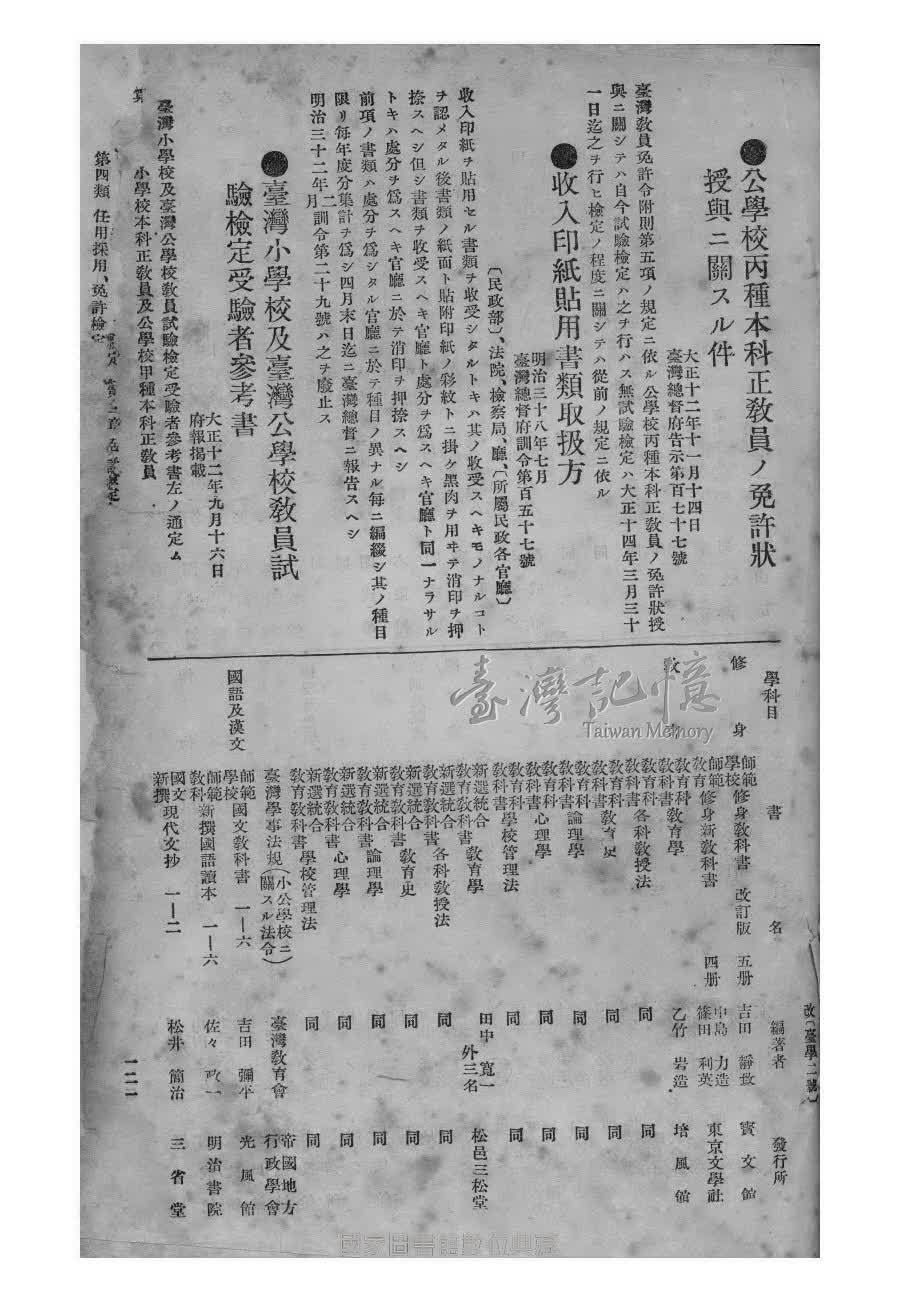 ●公學校丙種本科正敎員ノ免許狀
授與ニ關スル件
大正十二年十一月十四日
臺灣總督府告示第百七十七號
臺灣敎員免許令附則第五項ノ規定ニ依ル公學校丙種本科正敎員ノ免許狀授
與ニ關シテハ自今試驗檢定ハ之ヲ行ハス無試驗檢定ハ大正十四年三月三十
一日迄之ヲ行ヒ檢定ノ程度ニ關シテハ從前ノ規定ニ依ル
●收入印紙貼用書類取扱方
明治三十八年七月
臺灣總督府訓令第百五十七號
〔民政部〕、法院、檢察局、廳、〔所屬民政各官廳〕
收入印紙ヲ貼用セル書類ヲ收受シタルトキハ其ノ收受スヘキモノナルコト
ヲ認メタル後書類ノ紙面ト貼附印紙ノ彩紋トニ掛ケ黑肉ヲ用ヰテ消印ヲ押
捺スヘシ但シ書類ヲ收受スヘキ官廳ト處分ヲ爲スヘキ官廳ト同一ナラサル
トキハ處分ヲ爲スヘキ官廳ニ於テ消印ヲ押捺スヘシ
前項ノ書類ハ處分ヲ爲シタル官廳ニ於テ種目ノ異ナル每ニ編綴シ其ノ種目
限リ每年度分集計ヲ爲シ四月末日迄ニ臺灣總督ニ報告スヘシ
明治三十二年二月訓令第二十九號ハ之ヲ廢止ス
●臺灣小學校及臺灣公學校敎員試
驗檢定受驗者參考書
大正十二年九月十六日
府報揭載
臺灣小學校及臺灣公學校敎員試驗檢定受驗者參考書左ノ通定ム
小學校本科正敎員及公學校甲種本科正敎員
第四類 任用採用、免許檢定
改〔臺學二號〕
學科目 書名 編著者 發行所
修身 師範學校修身敎科書 改訂版 五册 吉田靜致 寶文館
師範敎育修身新敎科書 四册 中島力造 篠田利英 東京文學社
敎育 敎育科敎科書敎育學 乙竹岩造 培風館
敎育科敎科書各科敎授法 同 同
敎育科敎科書敎育史 同 同
敎育科敎科書論理學 同 同
敎育科敎科書心理學 同 同
敎育科敎科書學校管理法 同 同
新選統合敎育敎科書敎育學 田中寬一外三名 松邑三松堂
新選統合敎育敎科書各科敎授法 同 同
新選統合敎育敎科書敎育史 同 同
新選統合敎育敎科書論理學 同 同
新選統合敎育敎科書心理學 同 同
新選統合敎育敎科書學校管理法 同 同
臺灣學事法規(小公學校ニ關スル法令) 臺灣敎育會 帝國地方行政學會
國語及漢文 師範學校國文敎科書 一―六 吉田彌平 光風館
師範敎科新撰國語讀本 一―六 佐々政一 明治書院
國文新撰現代文抄 一―二 松井簡治 三省堂
一二一
臺灣記憶
Taiwan Memory
國家圖書館數位典藏